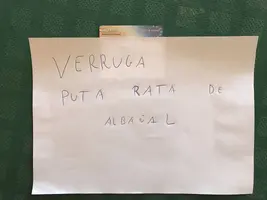 VERRUGA
PUTA RATA DE
ALBAÑAL